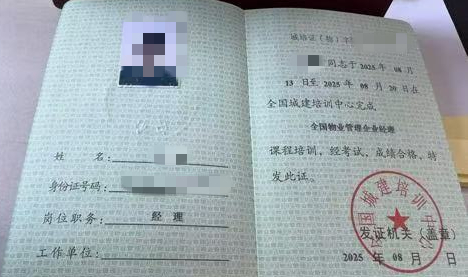 姓 名：
身份证号码：
岗位职务： 经 理
工作单位：
城培证（物）字
同志于 2025 年 08 月
13 日至 2025 年 08 月 20 日在
全国城建培训中心完成
全国物业管理企业经理
课程培训，经考试，成绩合格，特
发此证。
全国城建培训中心
发证机关（盖章）
2025 年 08 月 日